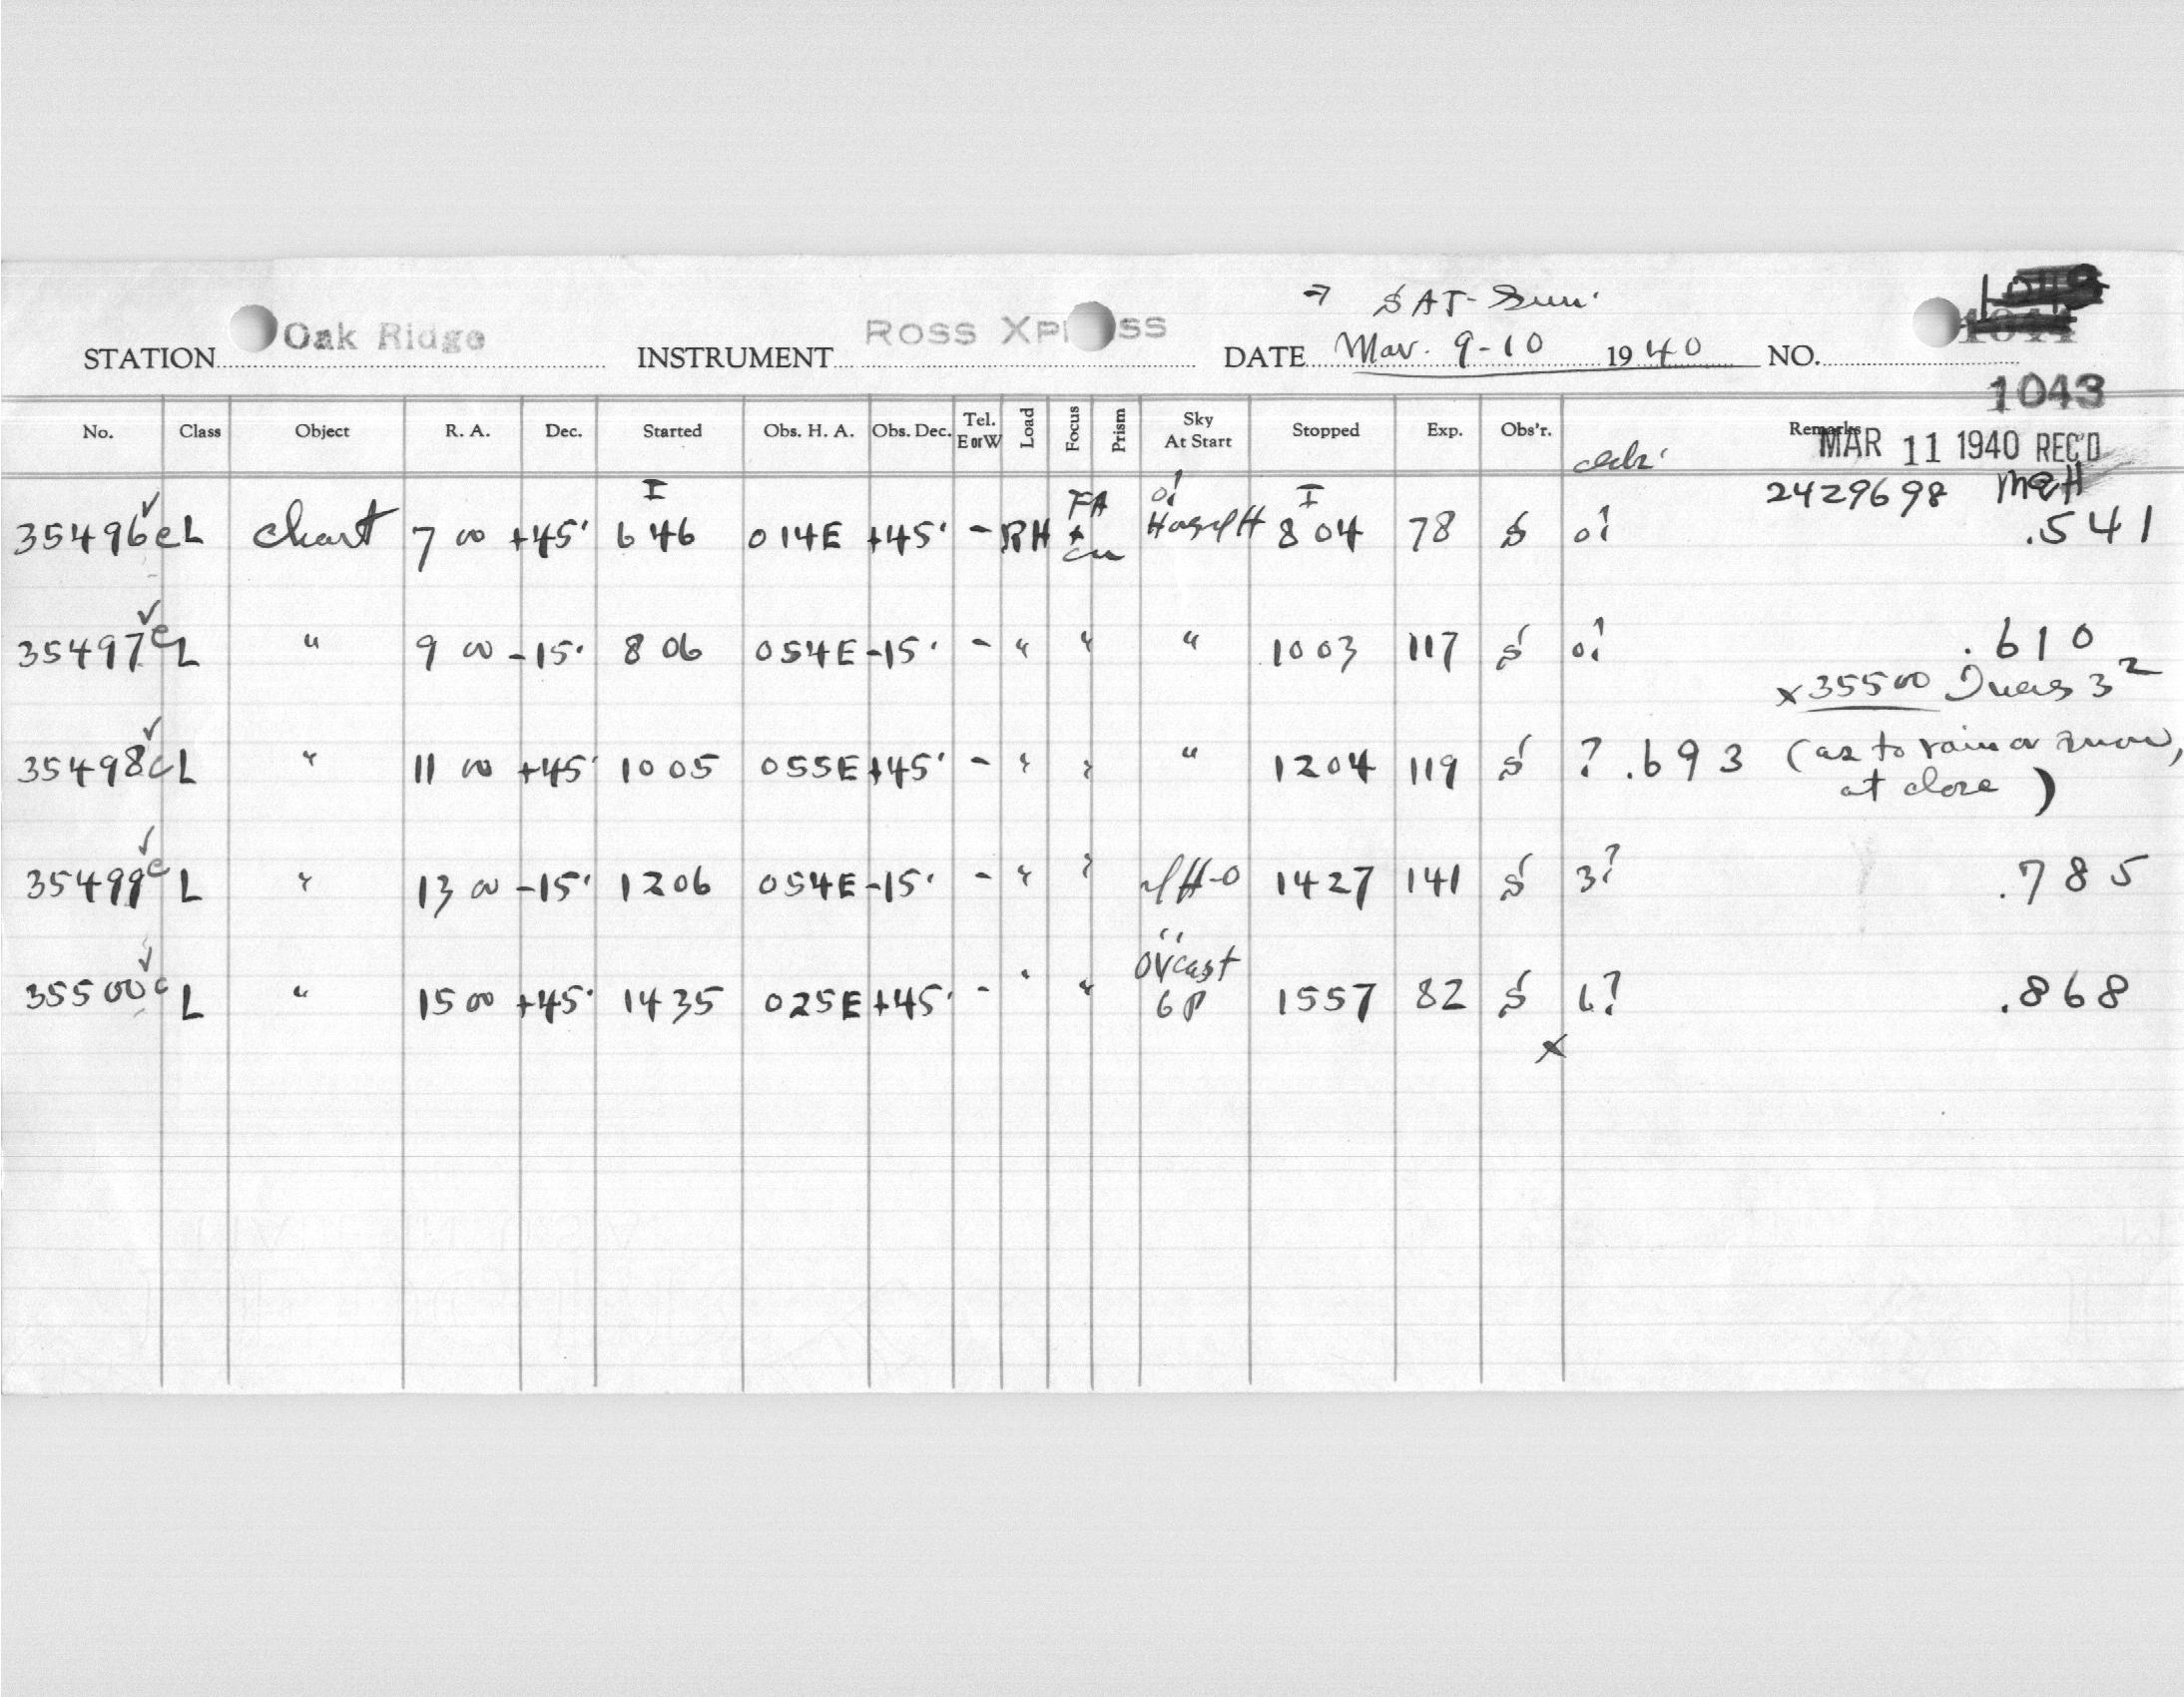 → SAT-Sun.
STATION Oak Ridge INSTRUMENT ROSS XP SS DATE Mar. 9-10 1940 NO.
1043
No. Class Object R. A. Dec. Started Obs. H. A. Obs. Dec. Tel. E or W Load Focus Prism Sky At Start Stopped Exp. Obs'r. Remarks
MAR 11 1940 REC'D
2429698 MEH
35496 c L chart 7 00 +45° I 6 46 0 14E +45° - RH FA + cu 0! I 8 04 78 S 0! .541
35497 c L " 9 00 -15° 8 06 0 54E -15° - " " " 10 03 117 S 0! .610
x 35500 3²
35498 c L " 11 00 +45° 10 05 0 55E +45° - " " " 12 04 119 S ? .693 (as to rain or snow, at close)
35499 c L " 13 00 -15° 12 06 0 54E -15° - " " 14 27 141 S 3? .785
35500 c L " 15 00 +45° 14 35 0 25E +45° - " " ovcast 6P 15 57 82 S 6? .868
x